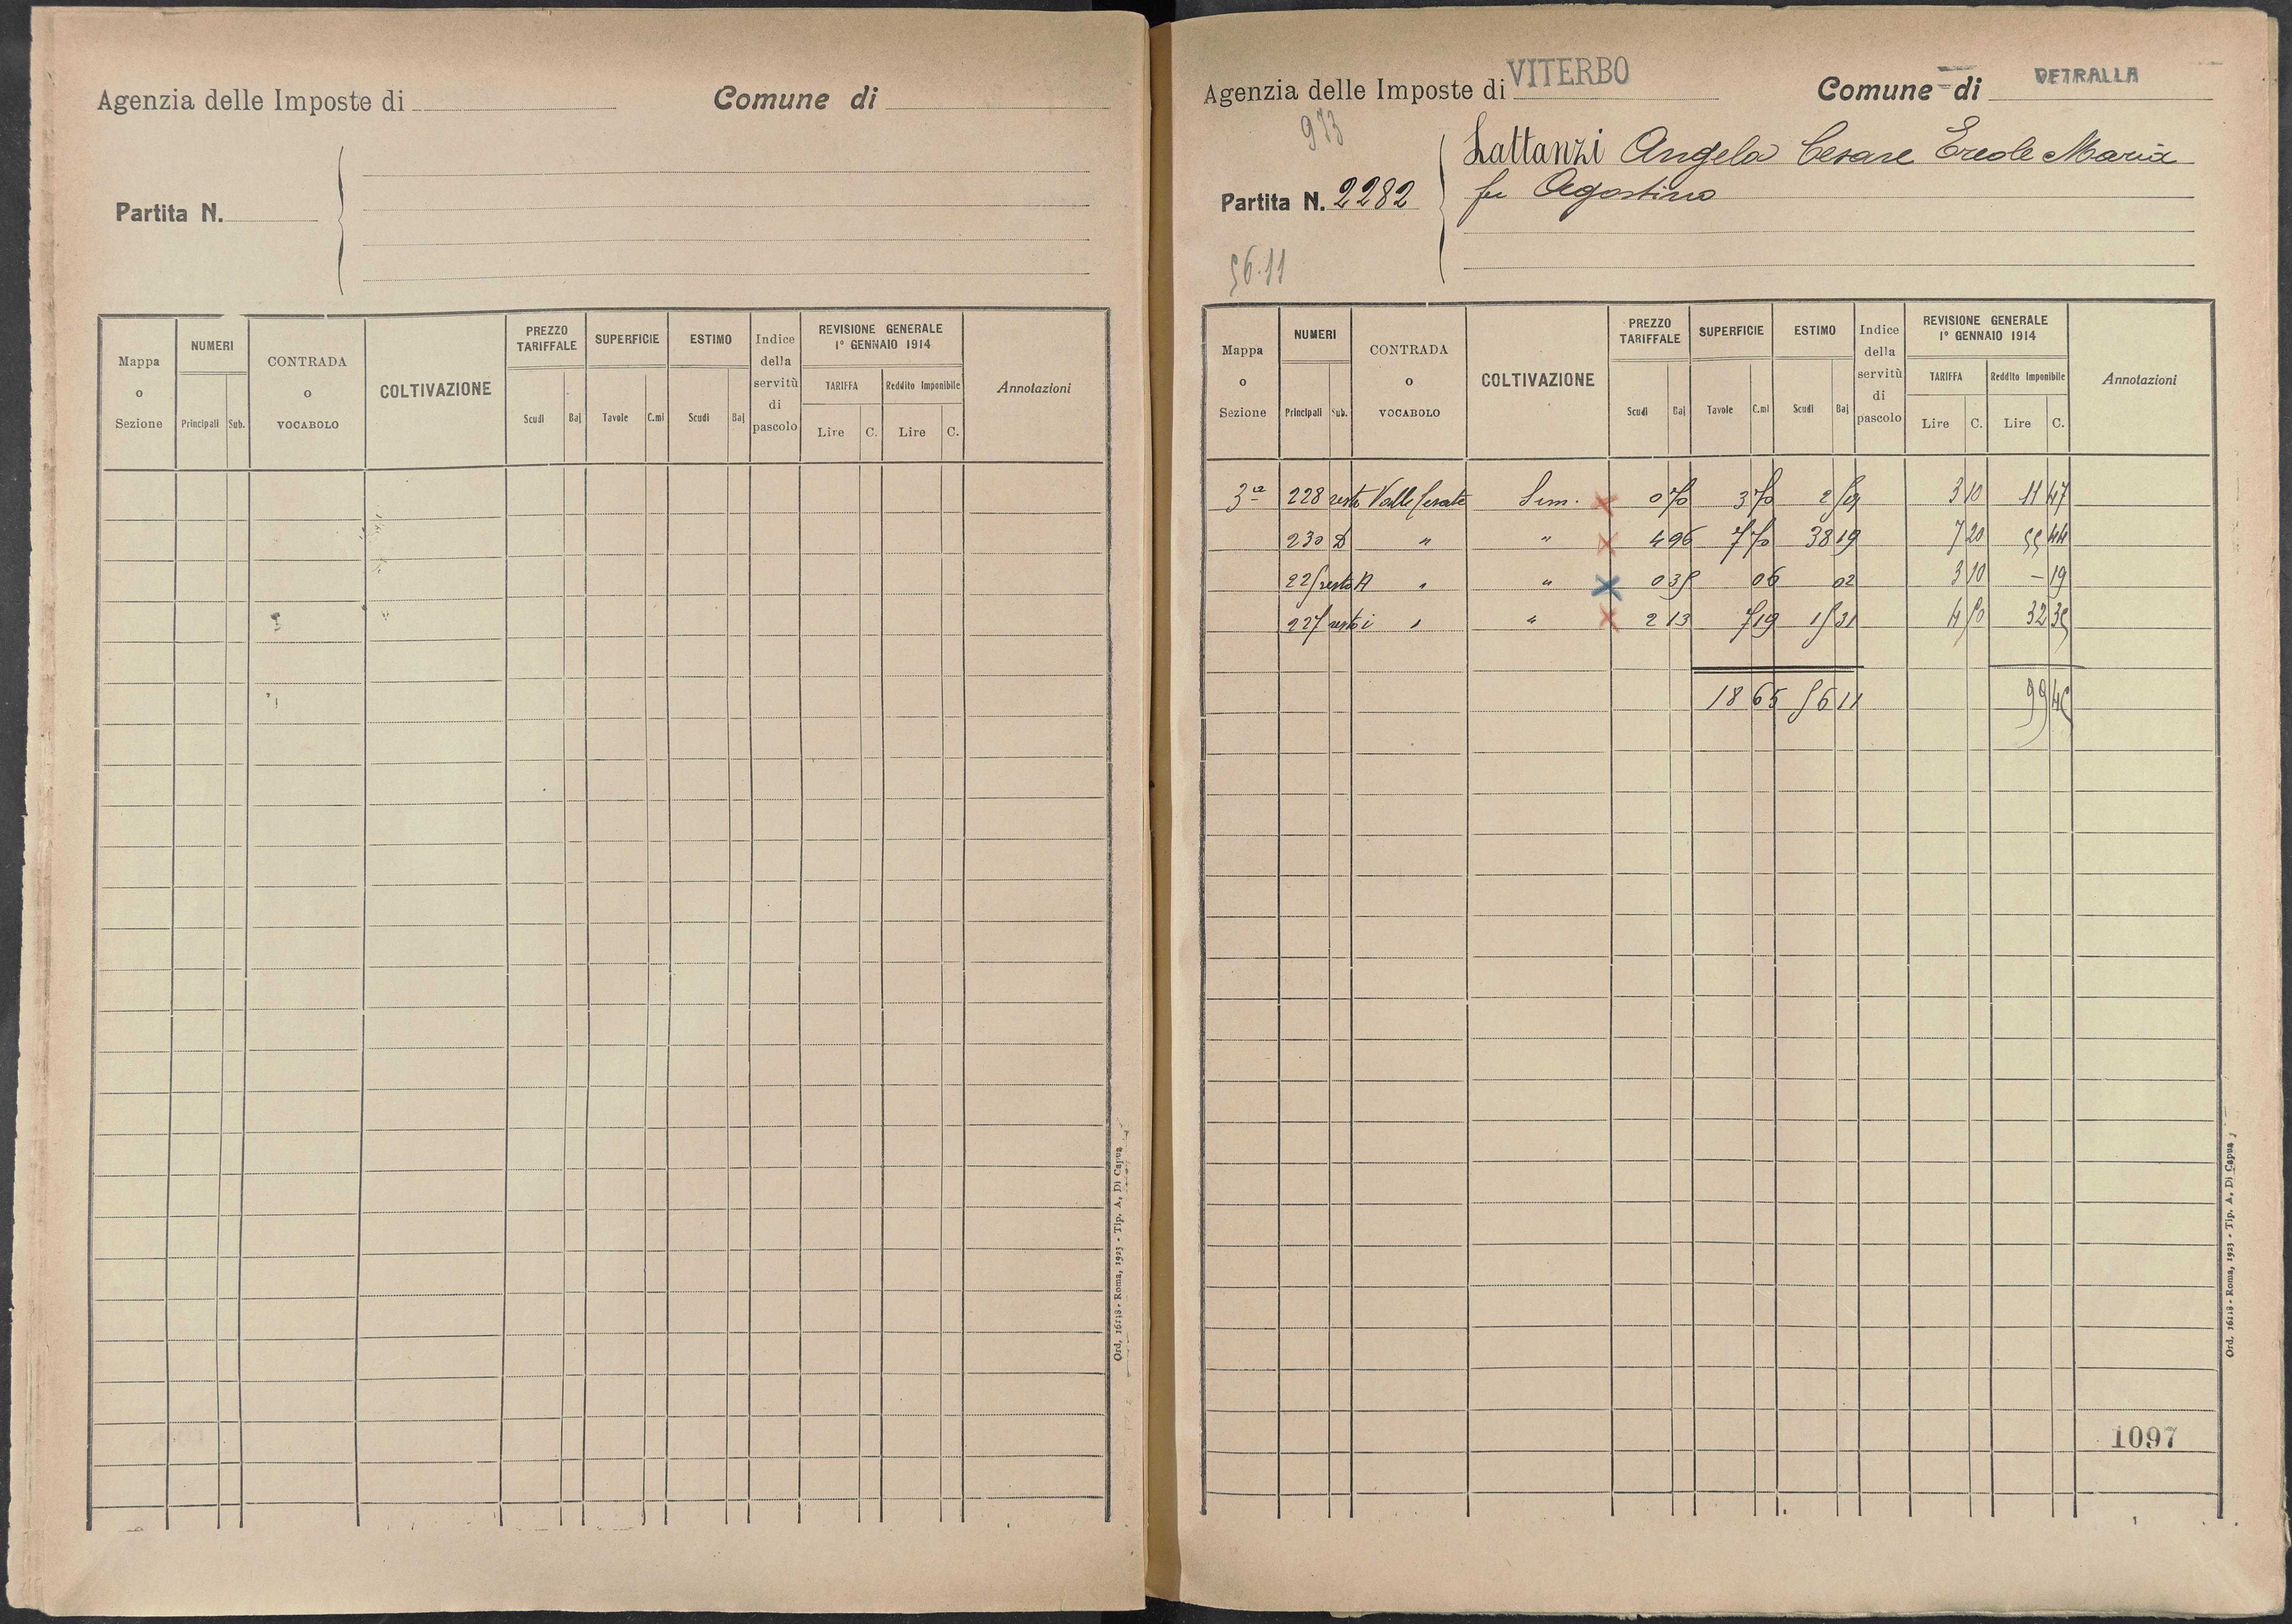 Agenzia delle Imposte di
Comune di
Partita N.
Mappa o Sezione
NUMERI
Principali Sub.
CONTRADA o VOCABOLO
COLTIVAZIONE
PREZZO TARIFFALE
Scudi Baj
SUPERFICIE
Tavole C.mi
ESTIMO
Scudi Baj
Indice della servitù di pascolo
REVISIONE GENERALE
1° GENNAIO 1914
TARIFFA Reddito Imponibile
Lire C. Lire C.
Annotazioni
Ord. 16118 - Roma, 1923 - Tip. A. Di Capua
Agenzia delle Imposte di VITERBO
Comune di VETRALLA
973
Partita N. 2282
Lattanzi Angela Cesare Ercole Maria
fu Agostino
56.11
Mappa o Sezione
NUMERI
Principali Sub.
CONTRADA o VOCABOLO
COLTIVAZIONE
PREZZO TARIFFALE
Scudi Baj
SUPERFICIE
Tavole C.mi
ESTIMO
Scudi Baj
Indice della servitù di pascolo
REVISIONE GENERALE
1° GENNAIO 1914
TARIFFA Reddito Imponibile
Lire C. Lire C.
Annotazioni
3ª 228 resto Valle Cesate Sem. x 0 70 3 70 2 59 3 10 11 47
230 D " " x 4 96 7 70 38 19 7 20 55 44
225 resto A " " x 0 35 06 02 3 10 - 19
227 resto i " " x 2 13 7 19 15 31 4 50 32 35
18 65 56 11 99 45
1097
Ord. 16118 - Roma, 1923 - Tip. A. Di Capua